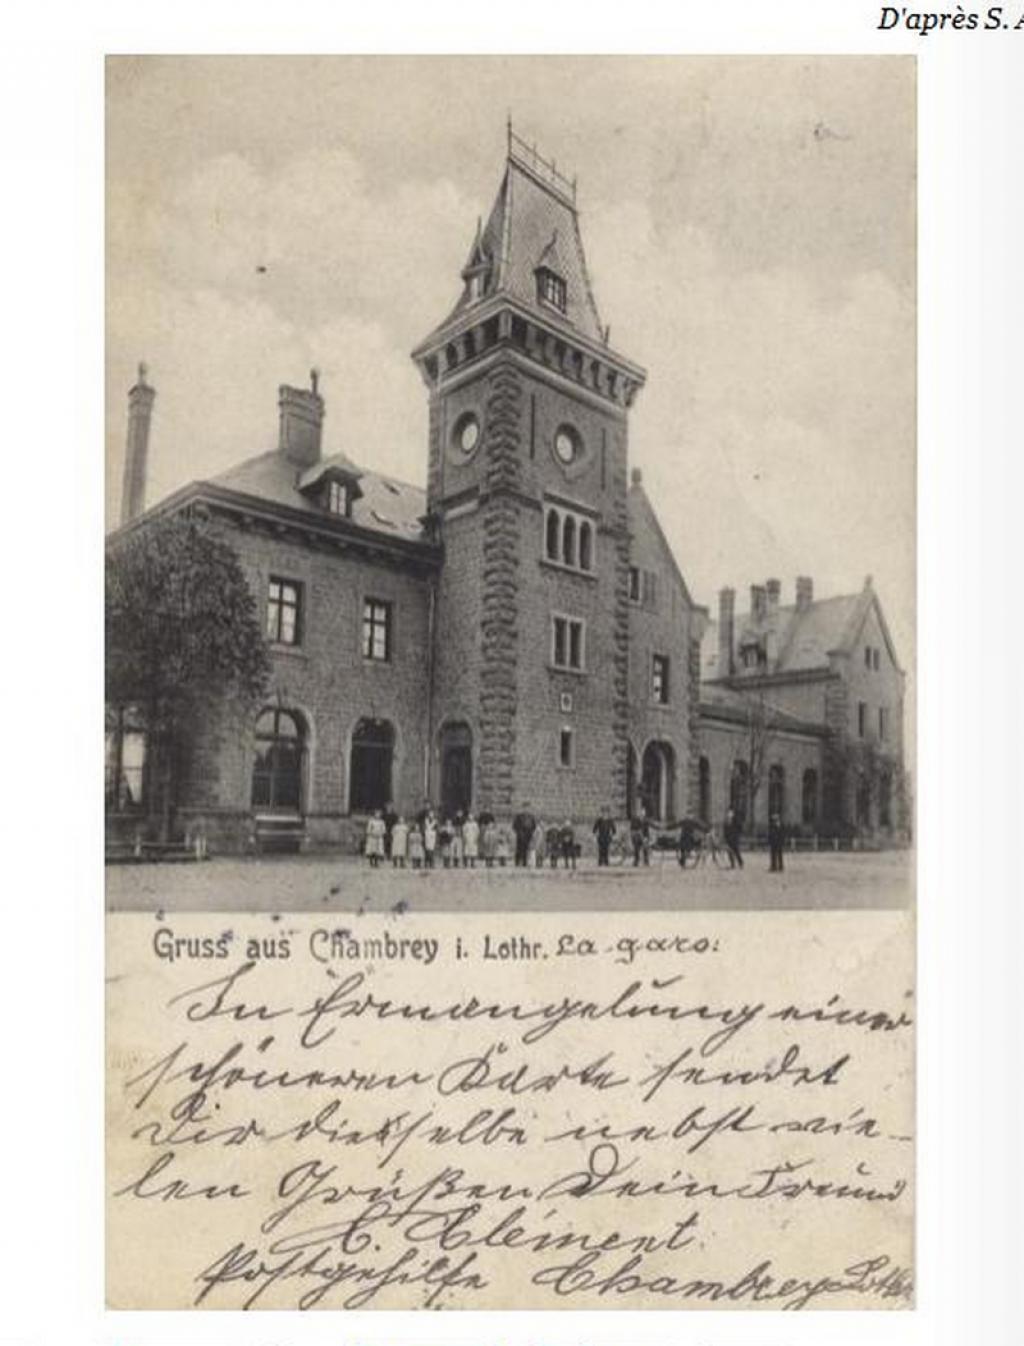 D'après S. A
Gruss aus Chambrey i. Lothr. La gare.
In Ermangelung einer
schöneren Karte sendet
Dir dieselbe nebst vie-
len Grüßen Dein Freund
C. Clément.
Postgehilfe Chambrey Lothr